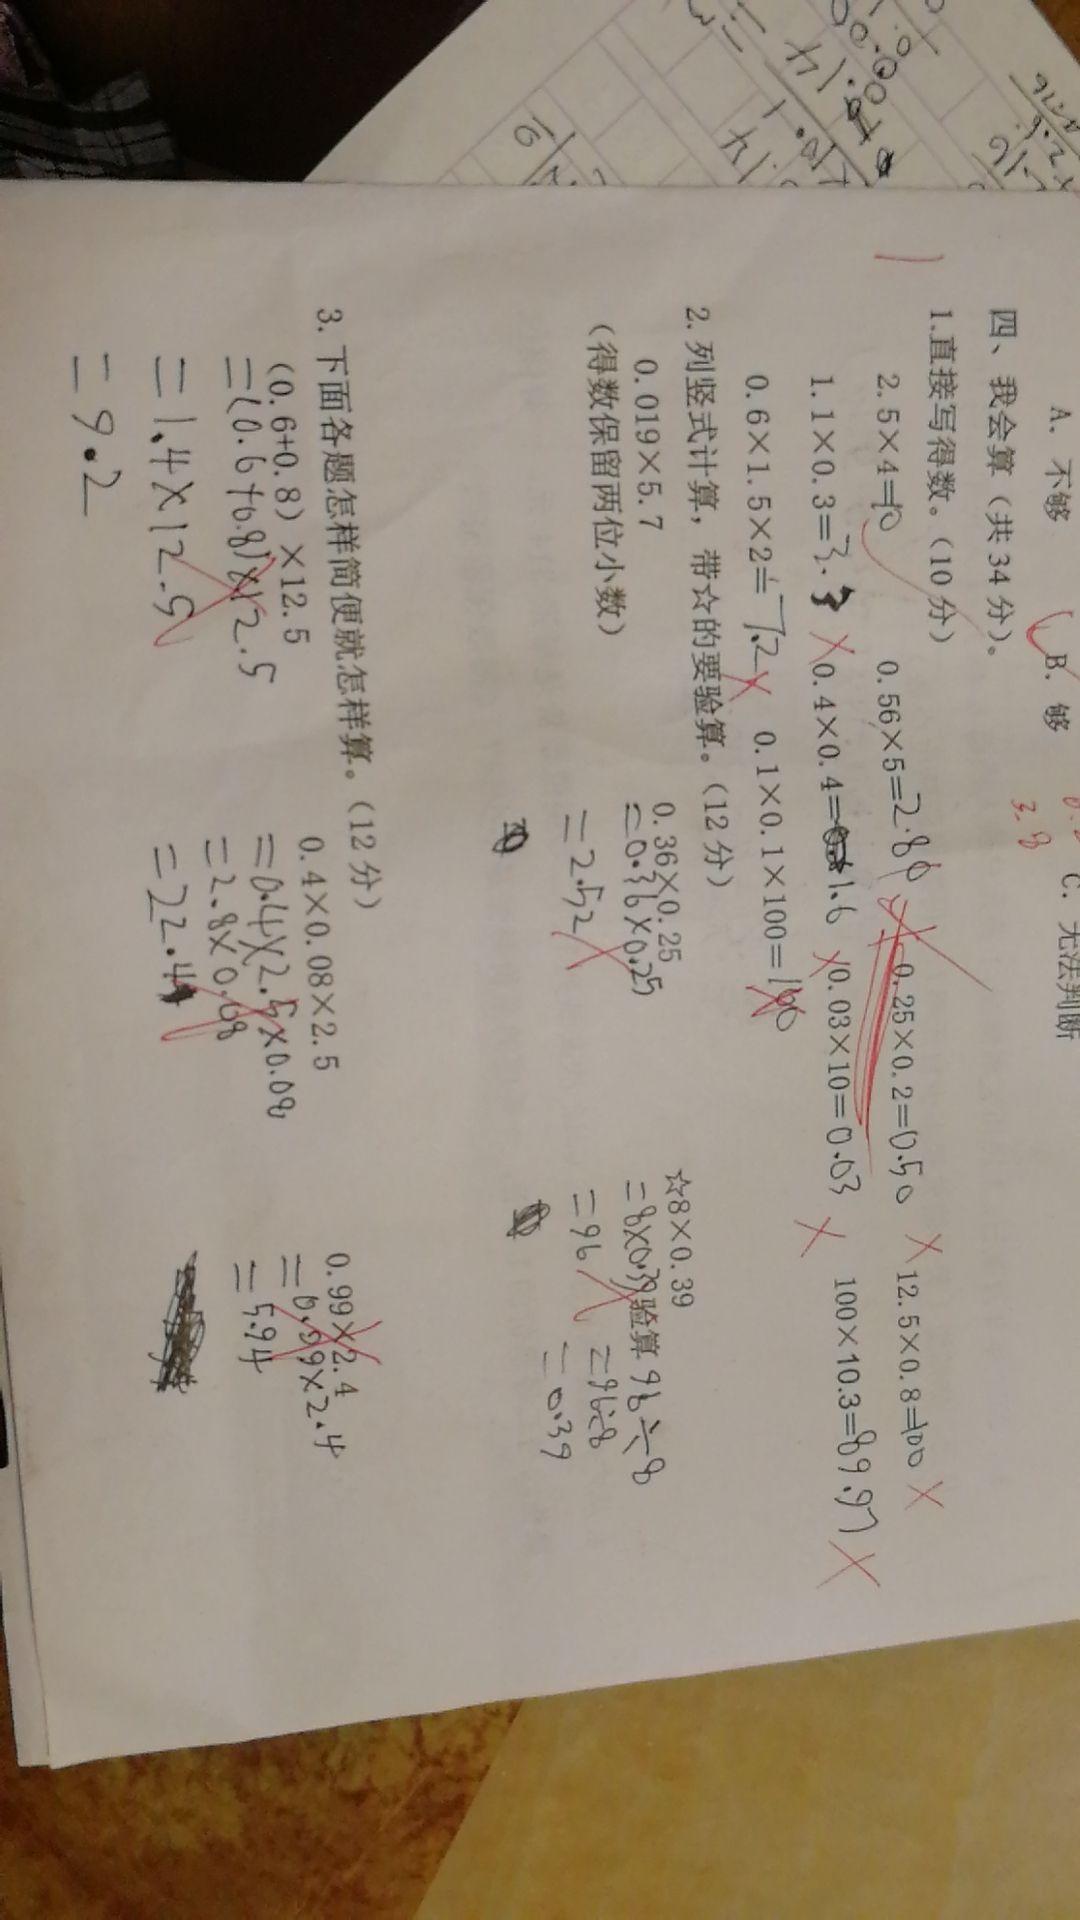 A. 不够 B. 够 C. 无法判断
3.8
四、我会算（共34分）。
1.直接写得数。（10分）
2.5×4=10 0.56×5=2.80 0.25×0.2=0.50 12.5×0.8=100
1.1×0.3=3.3 0.4×0.4=1.6 0.03×10=0.03 100×10.3=89.97
0.6×1.5×2=7.2 0.1×0.1×100=100
2.列竖式计算，带☆的要验算。（12分）
0.019×5.7 0.36×0.25 ☆8×0.39
（得数保留两位小数） =0.36×0.25 =8×0.39 验算 96÷8
=2.52 =96 =96÷8
=0.39
3.下面各题怎样简便就怎样算。（12分）
(0.6+0.8)×12.5 0.4×0.08×2.5 0.99×2.4
=(0.6+0.8)×12.5 =0.4×2.5×0.08 =0.99×2.4
=1.4×12.5 =2.8×0.08 =5.94
=9.2 =22.4